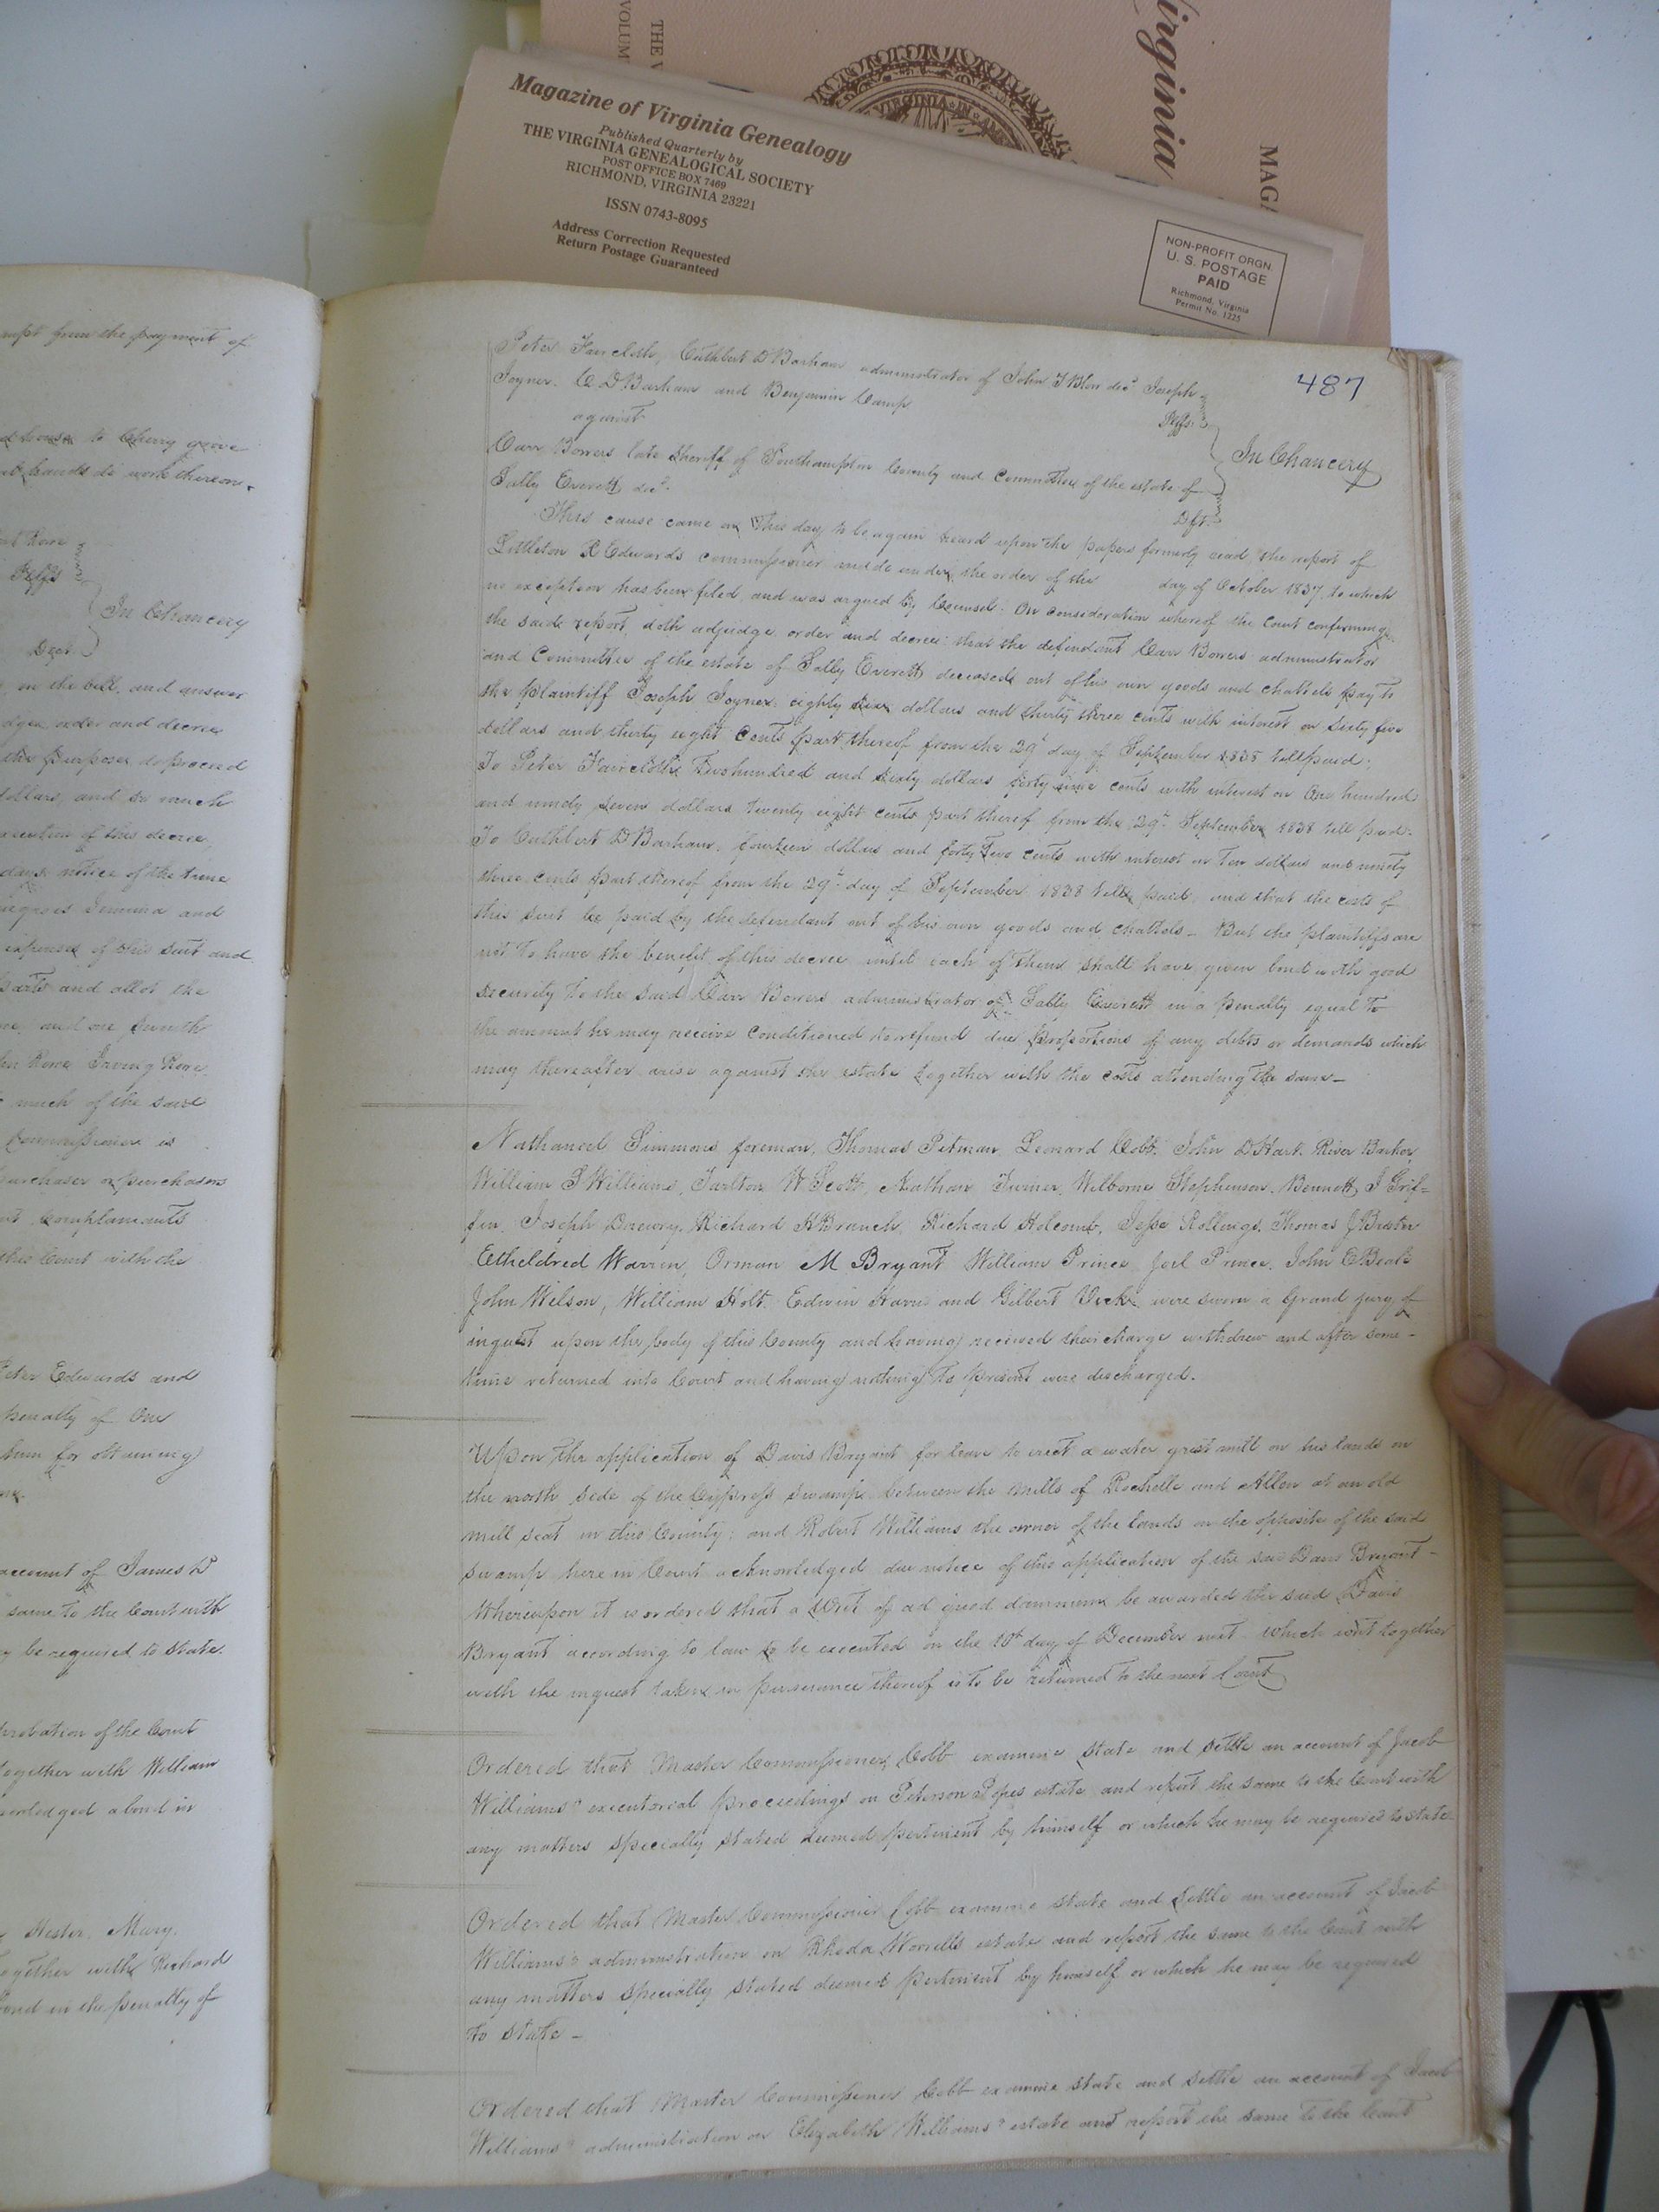 THE V
VOLUM
Virginia
MAGA
VIRGINIA IN
Magazine of Virginia Genealogy
Published Quarterly by
THE VIRGINIA GENEALOGICAL SOCIETY
POST OFFICE BOX 7469
RICHMOND, VIRGINIA 23221
ISSN 0743-8095
Address Correction Requested
Return Postage Guaranteed
NON-PROFIT ORGN.
U. S. POSTAGE
PAID
Richmond, Virginia
Permit No. 1225
from the payment of
to Cherry grove
hands do work thereon
Plffs
In Chancery
Deft
on the bill, and answer
order and decree
the purpose do proceed
dollars, and so much
execution of this decree
days notice of the time
negroes Jemima and
expenses of this suit and
parts and allot the
and one fourth
Rowe Irving Rowe
much of the said
Commissioner is
purchaser or purchasers
Complainants
this Court with the
Peter Edwards and
penalty of One
him for obtaining
account of James D
same to the Court with
be required to state.
probation of the Court
together with William
acknowledged a bond in
Hester, Mary,
together with Richard
bond in the penalty of
487
Peter Faircloth, Cuthbert D Barham administrator of John T Blow decd Joseph
Joyner. C. D Barham and Benjamin Camp Plffs
against
In Chancery
Carr Bowers late Sheriff of Southampton County and Committee of the estate of
Sally Everett decd. Dft
This cause came on this day to be again heard upon the papers formerly read, the report of
Littleton R Edwards commissioner made under the order of the day of October 1837, to which
no exception has been filed, and was argued by Counsel. On consideration whereof the court confirming
the said report, doth adjudge order and decree that the defendant Carr Bowers administrator
and Committee of the estate of Sally Everett deceased out of his own goods and chattels pay to
the plaintiff Joseph Joyner eighty six dollars and thirty three cents with interest on sixty five
dollars and thirty eight Cents part thereof from the 29th day of September 1838 till paid;
To Peter Faircloth Two hundred and sixty dollars forty nine cents with interest on One hundred
and ninety seven dollars twenty eight cents part thereof from the 29th September 1838 till paid.
To Cuthbert D Barham, fourteen dollars and forty two cents with interest on Ten dollars and ninety
three cents part thereof from the 29th day of September 1838 till paid, and that the costs of
this suit be paid by the defendant out of his own goods and chattels - But the plaintiffs are
not to have the benefit of this decree until each of them shall have given bond with good
security to the said Carr Bowers administrator of Sally Everett in a penalty equal to
the amount he may receive conditioned to refund due proportions of any debts or demands which
may thereafter arise against the estate together with the costs attending the same -
Nathaniel Simmons foreman, Thomas Pitman, Leonard Cobb, John D Hart, River Barker,
William S Williams, Tarlton W Scott, Nathan Turner, Wilborne Stephenson, Bennett J Grif-
fin, Joseph Drewry, Richard H Branch, Richard Holcomb, Jesse Rollings, Thomas J Bristor
Etheldred Warren, Orman M Bryant William Prince Joel Prince, John C Beale
John Wilson, William Holt, Edwin Harris and Gilbert Vick were sworn a Grand jury of
inquest upon the body of this County and having received their charge withdrew and after some-
time returned into Court and having nothing to present were discharged.
Upon the application of Davis Bryant for leave to erect a water grist mill on his lands on
the north side of the Cypress swamp between the mills of Rochelle and Allen at an old
mill seat in this County; and Robert Williams the owner of the lands on the opposite of the said
swamp here in Court acknowledged due notice of this application of the said Davis Bryant -
Whereupon it is ordered that a Writ of ad quod damnum be awarded the said Davis
Bryant according to law to be executed on the 10th day of December next which writ together
with the inquest taken in pursuance thereof is to be returned to the next Court
Ordered that Master Commissioner Cobb examine state and settle an account of Jacob
Williams' executorial proceedings on Peterson Popes estate and report the same to the Court with
any matters specially stated deemed pertinent by himself or which he may be required to state
Ordered that Master Commissioner Cobb examine state and Settle an account of Jacob
Williams' administration on Rhoda Worrells estate and report the same to the Court with
any matters specially stated deemed pertinent by himself or which he may be required
to state -
Ordered that Master Commissioner Cobb examine state and settle an account of Jacob
Williams' administration on Elizabeth Williams' estate and report the same to the Court